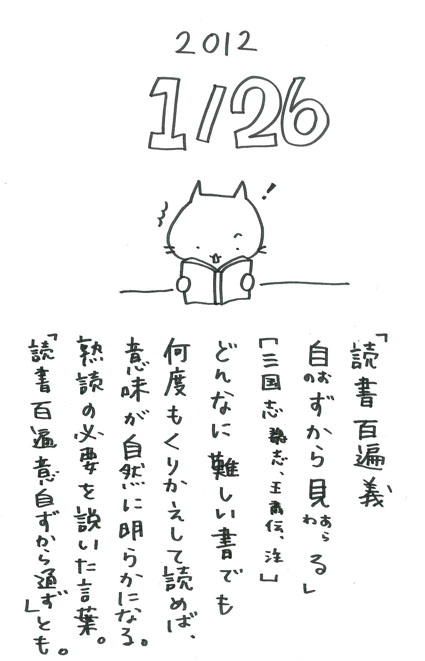 2012
1/26
!
「読書百遍義
自ずから見る」
おの
あらわ
[三国志 魏志、王粛伝、注]
どんなに難しい書でも
何度もくりかえして読めば、
意味が自然に明らかになる。
熟読の必要を説いた言葉。
「読書百遍意自ずから通ず」とも。